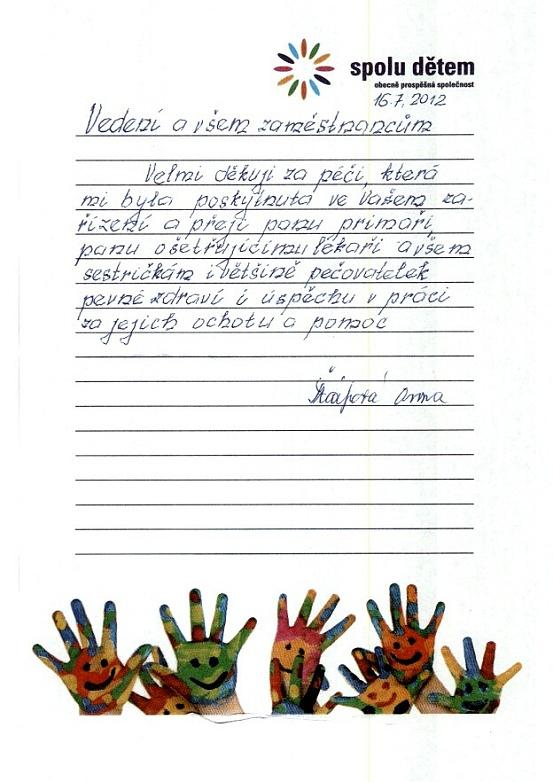 spolu dětem
obecně prospěšná společnost
16.7.2012
Vedení a všem zaměstnancům
Velmi děkuji za péči, která
mi byla poskytnuta ve Vašem za-
řízení a přeji panu primáři,
panu ošetřujícímu lékaři a všem
sestričkám i většině pečovatelek
pevné zdraví i úspěchu v práci
za jejich ochotu a pomoc
Anna